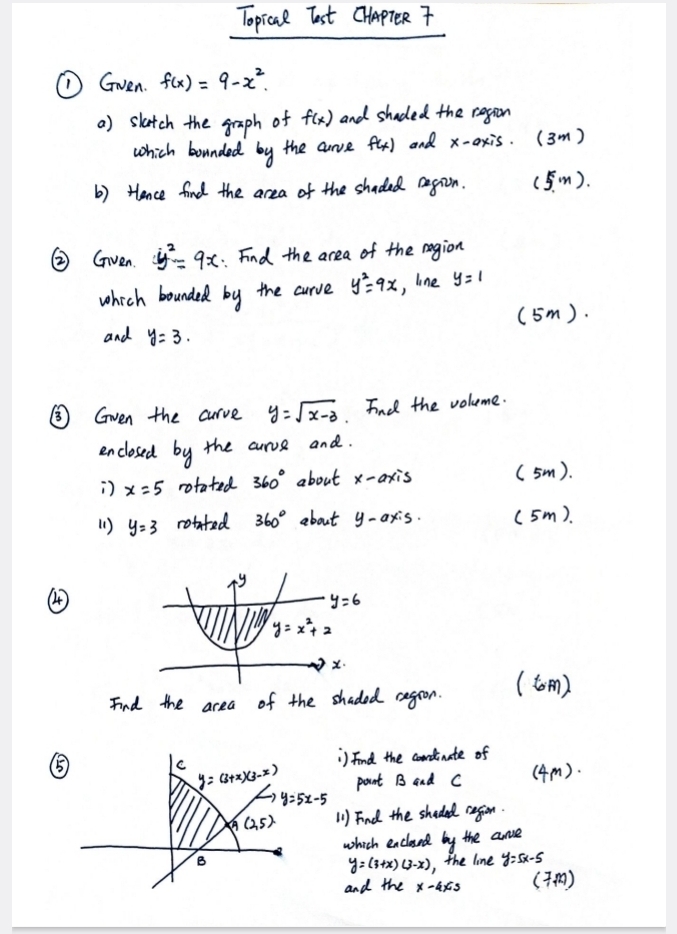 Topical Test CHAPTER 7
① Given. f(x) = 9-x².
a) sketch the graph of f(x) and shaded the region
which bounded by the curve f(x) and x-axis. (3m)
b) Hence find the area of the shaded region. (5m).
② Given. y² = 9x. Find the area of the region
which bounded by the curve y²=9x, line y=1
and y=3. (5m).
③ Given the curve y=√x-3. Find the volume.
enclosed by the curve and.
i) x=5 rotated 360° about x-axis (5m).
ii) y=3 rotated 360° about y-axis. (5m).
④
y
y=6
y=x²+2
x.
Find the area of the shaded region. (10m)
⑤
C
y=(3+x)(3-x)
y=5x-5
A (2,5)
B
i) Find the coordinate of
point B and C (4m).
ii) Find the shaded region.
which enclosed by the curve
y=(3+x)(3-x), the line y=5x-5
and the x-axis (7m)